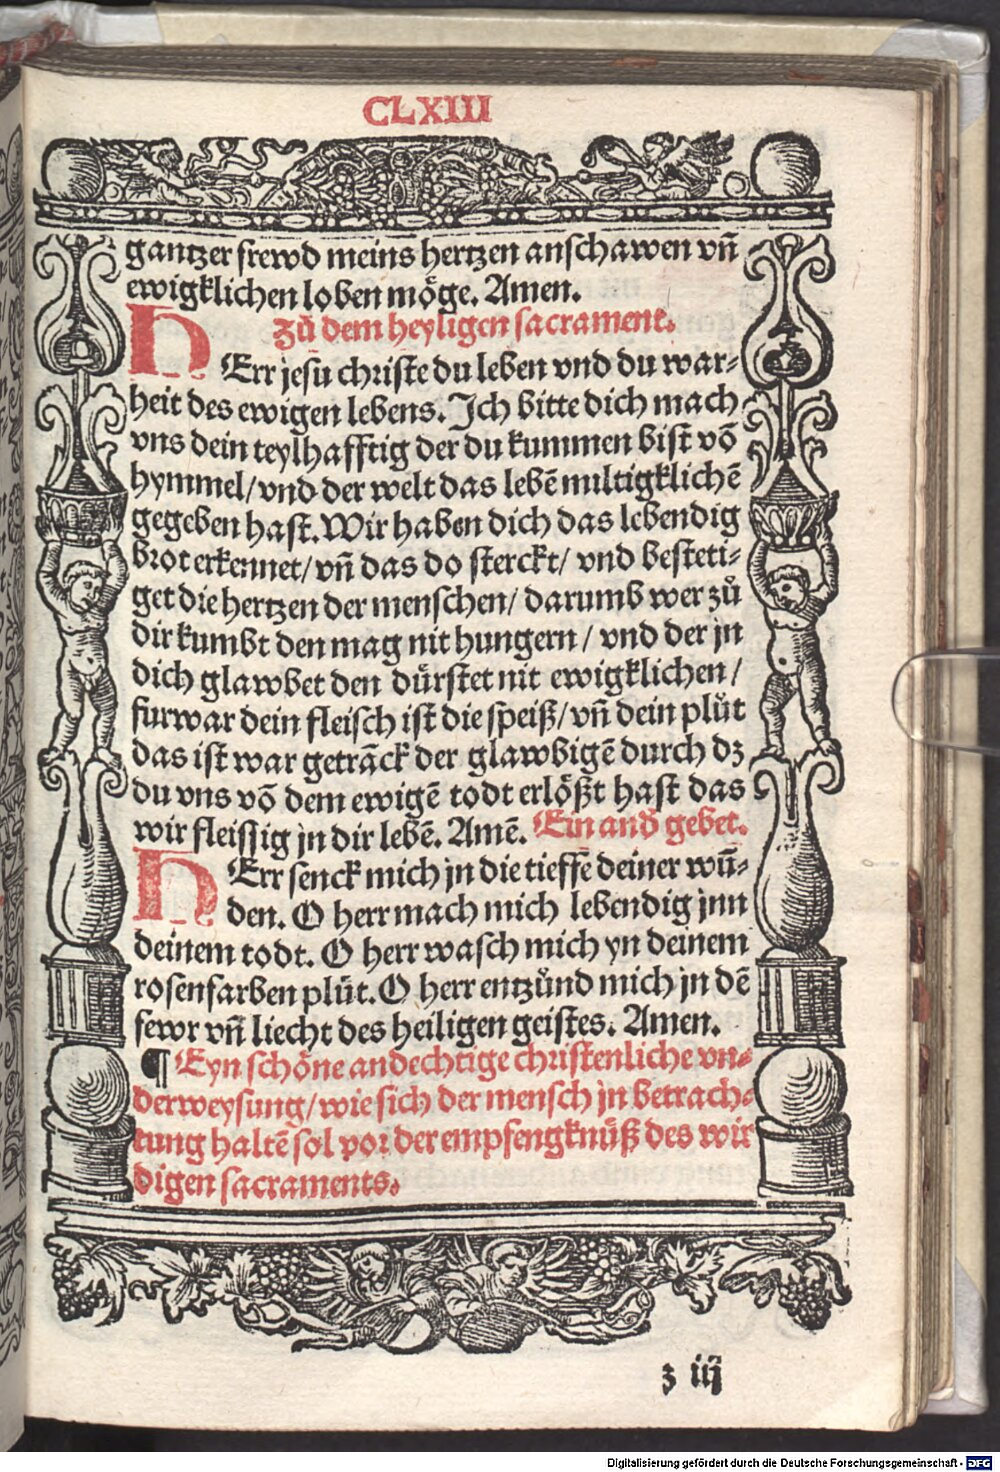 CLXIII
gantzer frewd meins hertzen anschawen vñ
ewigklichen loben möge. Amen.
Zů dem heyligen sacrament.
HErr jesu christe du leben vnd du war⸗
heit des ewigen lebens. Ich bitte dich mach
vns dein teylhafftig der du kummen bist võ
hymmel/ vnd der welt das lebẽ miltigklichẽ
gegeben hast. Wir haben dich das lebendig
brot erkennet/ vñ das do sterckt/ vnd besteti⸗
get die hertzen der menschen/ darumb wer zů
dir kumbt den mag nit hungern/ vnd der jn
dich glawbet den dürstet nit ewigklichen/
furwar dein fleisch ist die speiß/ vñ dein plůt
das ist war getrãck der glawbigẽ durch dz
du vns võ dem ewigẽ todt erlößt hast das
wir fleissig jn dir lebẽ. Amẽ. Ein and̃ gebet.
HErr senck mich jn die tieffe deiner wũ⸗
den. O herr mach mich lebendig jnn
deinem todt. O herr wasch mich yn deinem
rosenfarben plůt. O herr entzůnd mich jn dẽ
fewr vñ liecht des heiligen geistes. Amen.
¶ Eyn schöne andechtige christenliche vn⸗
derweysung/ wie sich der mensch jn betrach⸗
tung haltẽ sol vor der empfengknüß des wir
digen sacraments.
z iij
Digitalisierung gefördert durch die Deutsche Forschungsgemeinschaft - DFG